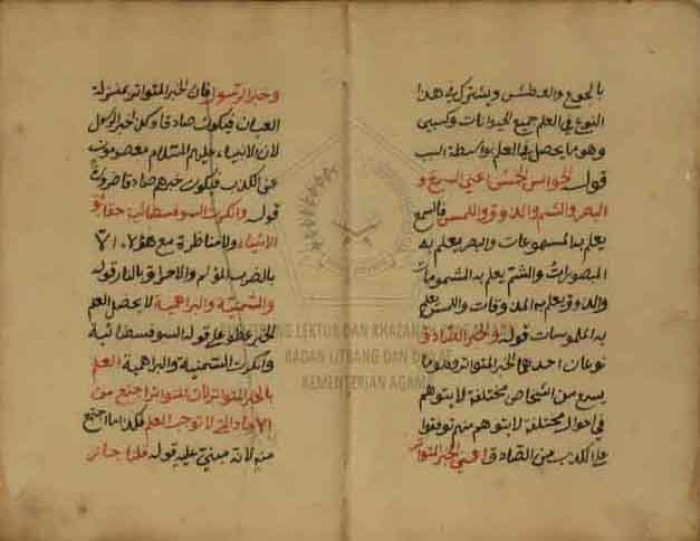 بالجوع والعطش ويشترك في هذا
النوع في العلم جميع الحيوانات وكسبي
وهو ما يحصل في العلم بواسطة السبب
قوله الحواس الخمس اعني السمع و
البصر والشم والذوق واللمس فالسمع
يعلم به المسموعات والبصر يعلم به
المبصورات والشم يعلم به المشمومات
والذوق يعلم به المذوقات واللمس يعلم
به الملموسات قوله والخبر الصادق
نوعان احدهما الخبر المتواتر وهو ما
يسمع من اشخاص مختلفة لا يتوهم
في احوال مختلفة لا يتوهم منهم توفقوا
على الكذب من الصادق اعني الخبر المتواتر
وخبر الرسول فان الخبر المتواتر بمنزلة
العيان فيكون صادقا وكل اخبر الرسول
لان الانبياء عليهم السلام معصومون
عن الكذب فيكون خبرهم صادقا ضرورة
قوله وانكرت السوفسطائية حقائق
الاشياء ولا مناظرة مع هؤلاء الا
بالضرب المؤلم والاحراق بالنار قوله
والسمنية والبراهمية لا يحصل العلم
الخبر عطف على قوله السوفسطائية
وانكرت السمنية والبراهمية العلم
بالخبر المتواتر لان المتواتر اجتمع من
الآحاد والتي لا توجب العلم فكذا ما اجتمع
منه لانه مبني عليه قوله قلنا جائز
BADAN LITBANG DAN DIKLAT
KEMENTERIAN AGAMA